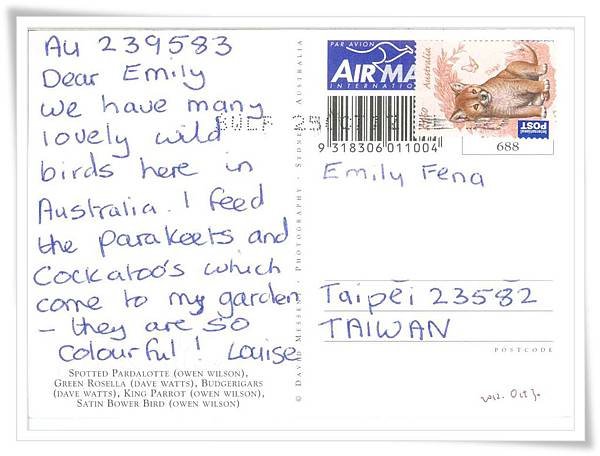 Au 239583
Dear Emily
we have many
lovely wild
birds here in
Australia. I feed
the parakeets and
Cockatoo's which
come to my garden
- they are so
colourful! Louise
SPOTTED PARDALOTTE (OWEN WILSON),
GREEN ROSELLA (DAVE WATTS), BUDGERIGARS
(DAVE WATTS), KING PARROT (OWEN WILSON),
SATIN BOWER BIRD (OWEN WILSON)
PAR AVION
AIR MA
INTERNATIO
Australia
International
POST
9 318306 011004
688
Emily Fena
Taipei 23582
TAIWAN
POSTCODE
2012. Oct